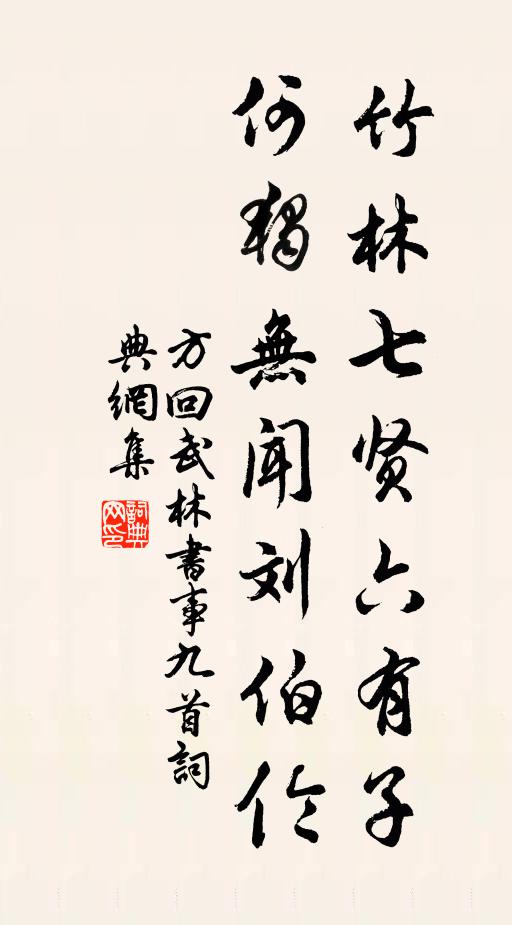 竹林七贤六有子
何独無闻刘伯伦
方回武林書事九首詞
典網集
詞典网印